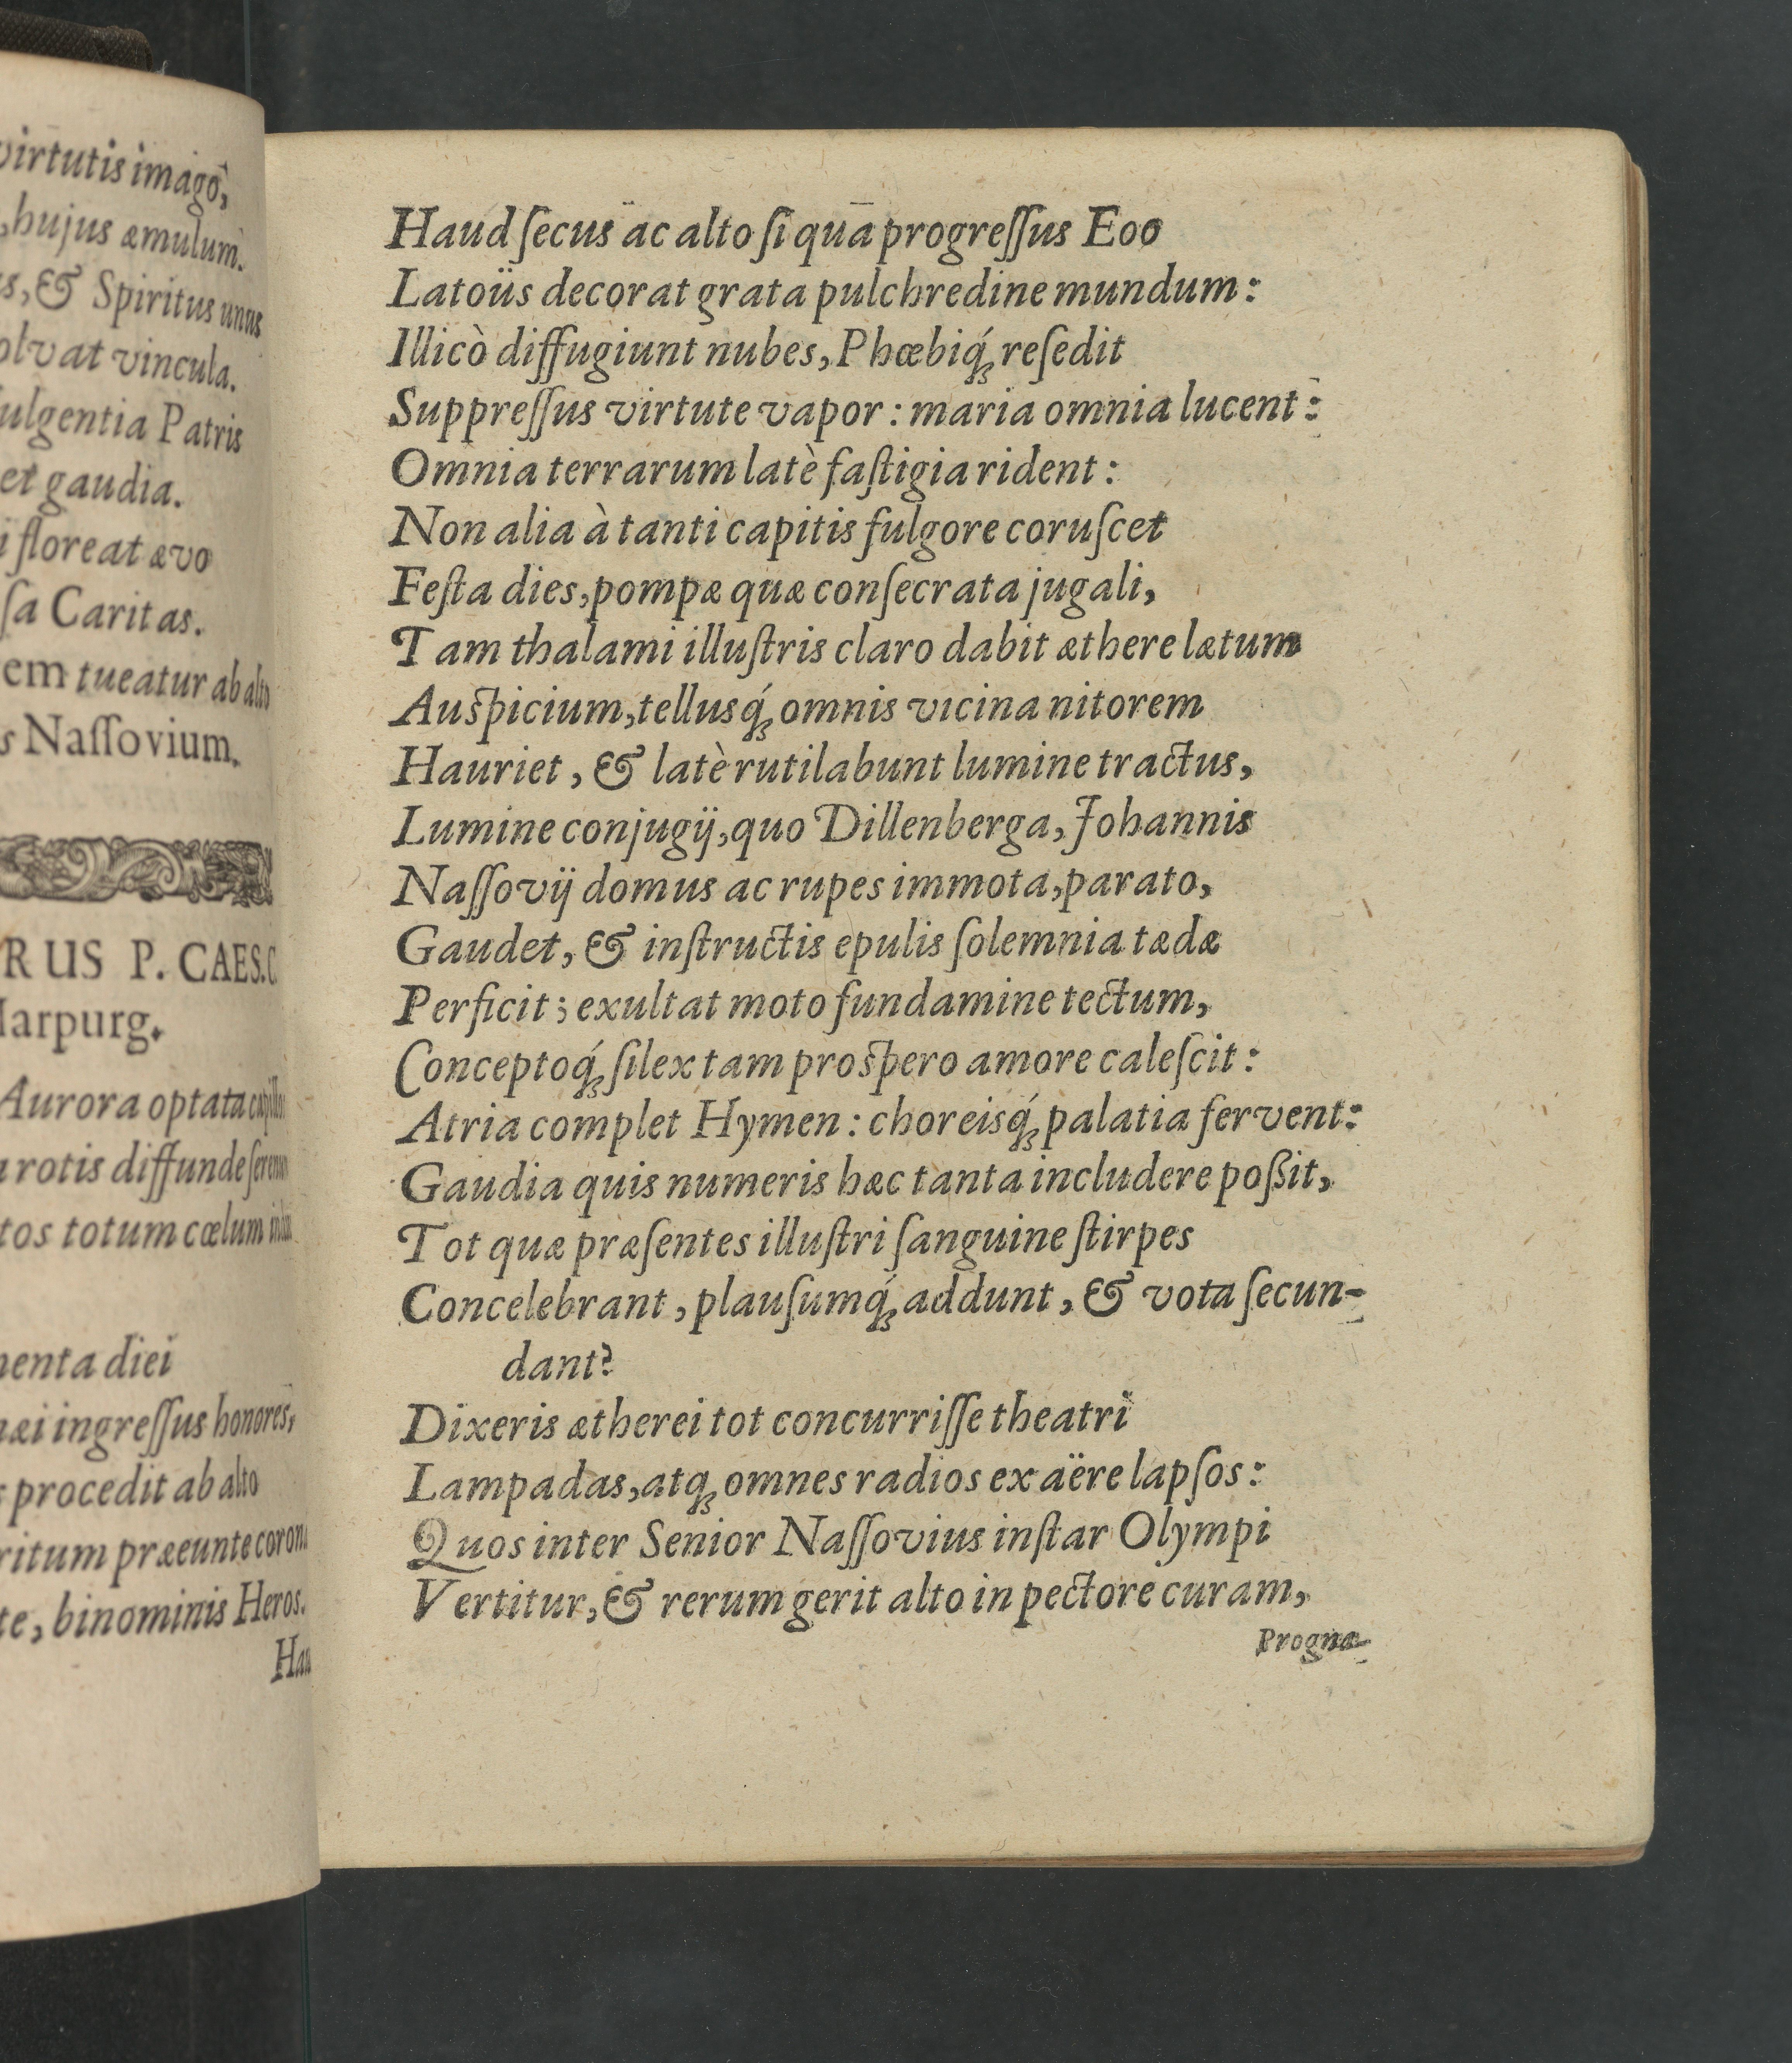 virtutis imago,
, hujus æmulum.
s, & Spiritus unus
olvat vincula.
ulgentia Patris
et gaudia.
i floreat ævo
ſa Caritas.
em tueatur ab alto
s Naſſovium.
RUS P. CAES. C
Harpurg.
Aurora optata capillos
rotis diffunde ſerenum
tos totum cœlum
menta diei
næi ingreſſus honores,
s procedit ab alto
ritum præeunte corona
te, binominis Heros.
Hau
Haud ſecus ac alto ſi qua progreſſus Eoo
Latoüs decorat grata pulchredine mundum:
Illicò diffugiunt nubes, Phœbiq́ꝫ reſedit
Suppreſſus virtute vapor: maria omnia lucent:
Omnia terrarum latè faſtigia rident:
Non alia à tanti capitis fulgore coruſcet
Feſta dies, pompæ quæ conſecrata jugali,
Tam thalami illuſtris claro dabit æthere lætum
Auſpicium, tellusq́ꝫ omnis vicina nitorem
Hauriet, & latè rutilabunt lumine tractus,
Lumine conjugij, quo Dillenberga, Johannis
Naſſovij domus ac rupes immota, parato,
Gaudet, & inſtructis epulis ſolemnia tædæ
Perficit; exultat moto fundamine tectum,
Conceptoq́ꝫ ſilex tam proſpero amore caleſcit:
Atria complet Hymen: choreisq́ꝫ palatia fervent:
Gaudia quis numeris hæc tanta includere poßit,
Tot quæ præſentes illuſtri ſanguine ſtirpes
Concelebrant, plauſumq́ꝫ addunt, & vota ſecun-
dant?
Dixeris ætherei tot concurriſſe theatri
Lampadas, atqꝫ omnes radios ex aëre lapſos:
Quos inter Senior Naſſovius inſtar Olympi
Vertitur, & rerum gerit alto in pectore curam,
Progna-